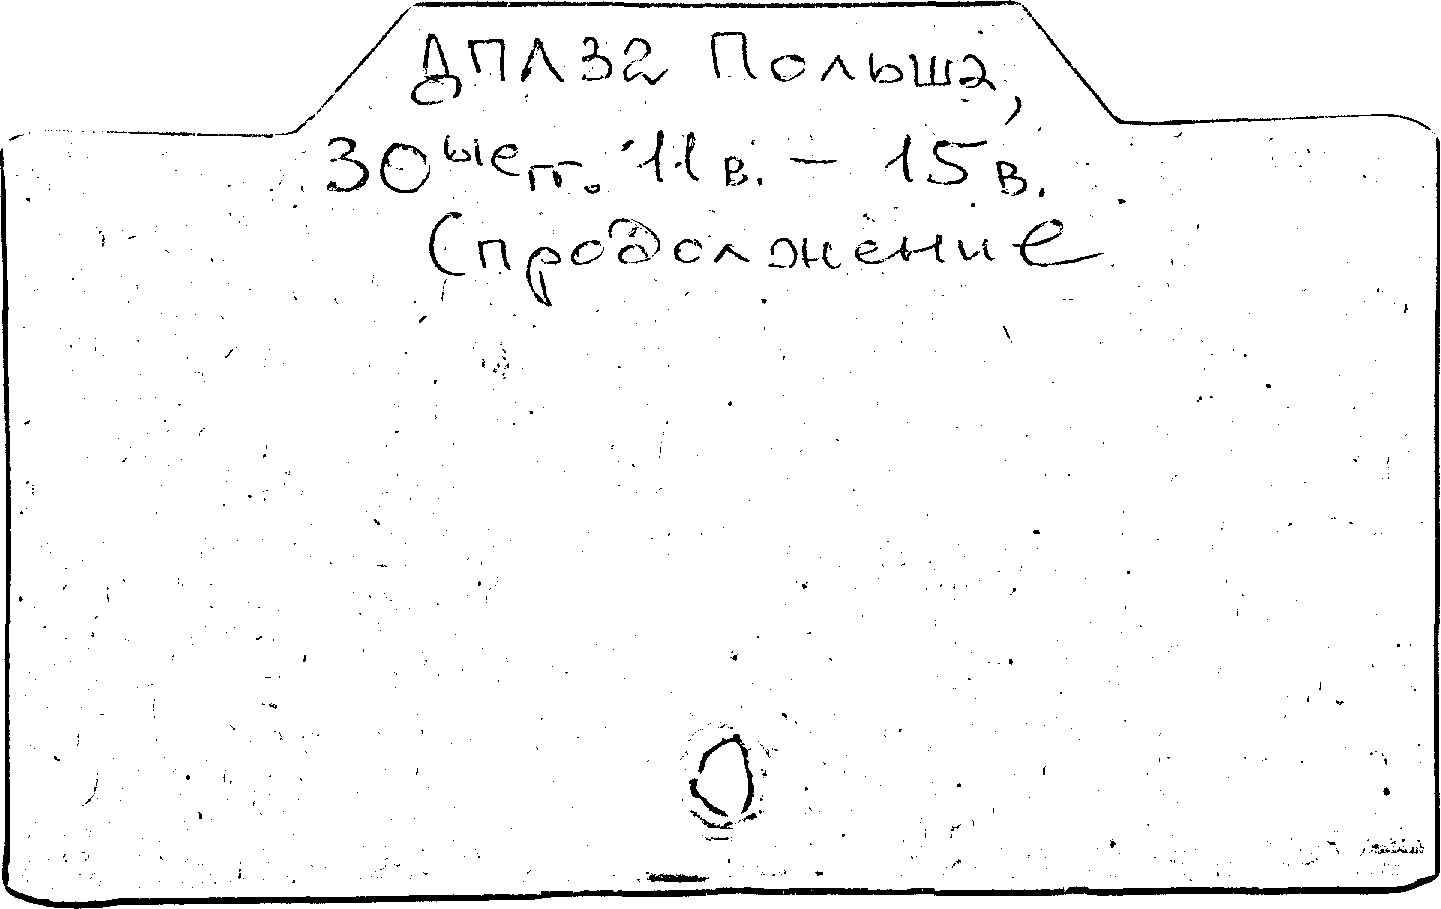 ДПЛ32 Польша,
30ые гг. 11 в. – 15 в.
(продолжение